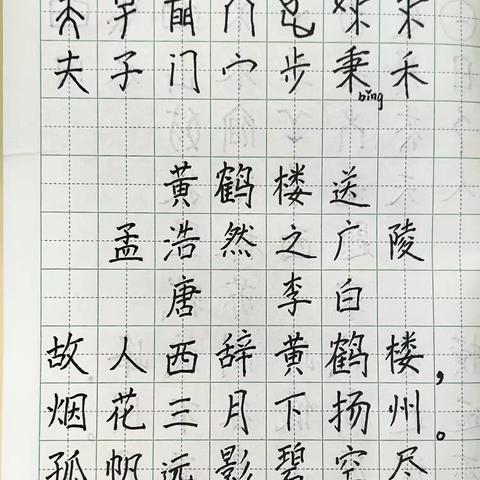 夫子门宀步秉禾
bǐng
黄鹤楼送
孟浩然之广陵
唐 李白
故人西辞黄鹤楼，
烟花三月下扬州。
孤帆远影碧空尽